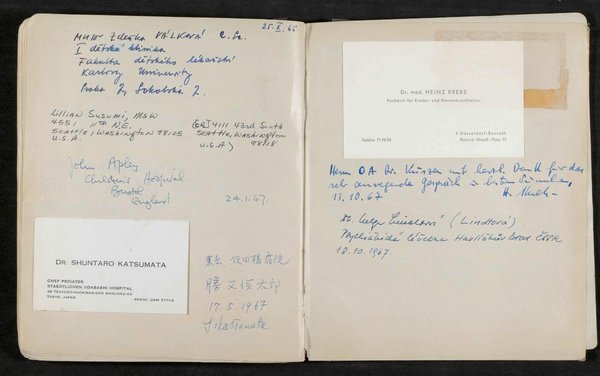 25. X. 66
MUDr Zdeňka VÁLKOVÁ C. Sc.
I dětská klinika
Fakulta dětského lékařství
Karlovy University
Praha 2, Sokolská 2.
Lillian Susumi, MSW
4551 11th N.E.
SEATTLE, WASHINGTON 98105
U.S.A.
(OR) 4111 43rd South
SEATTLE, WASHINGTON
98118
U.S.A)
John Apley
Children's Hospital
Bristol
England
24.1.67.
DR. SHUNTARO KATSUMATA
CHEF PEDIATER
STAEDTLICHEN IIDABASHI HOSPITAL
TOKYO, JAPAN
東京、飯田橋病院
勝又俊太郎
17. 5. 1967
S. Katsumata
Dr. med. HEINZ KREBS
Facharzt für Kinder- und Nervenkrankheiten
Telefon 71 9898
4 Düsseldorf-Benrath
Richard-Strauß-Platz 12
Herrn OA Dr. mit herzl. Dank für das
sehr anregende Gespräch
13. 10. 67
(Lindtová)
Psychiatrická léčebna Havlíčkův Brod ČSSR
18. 10. 1967.